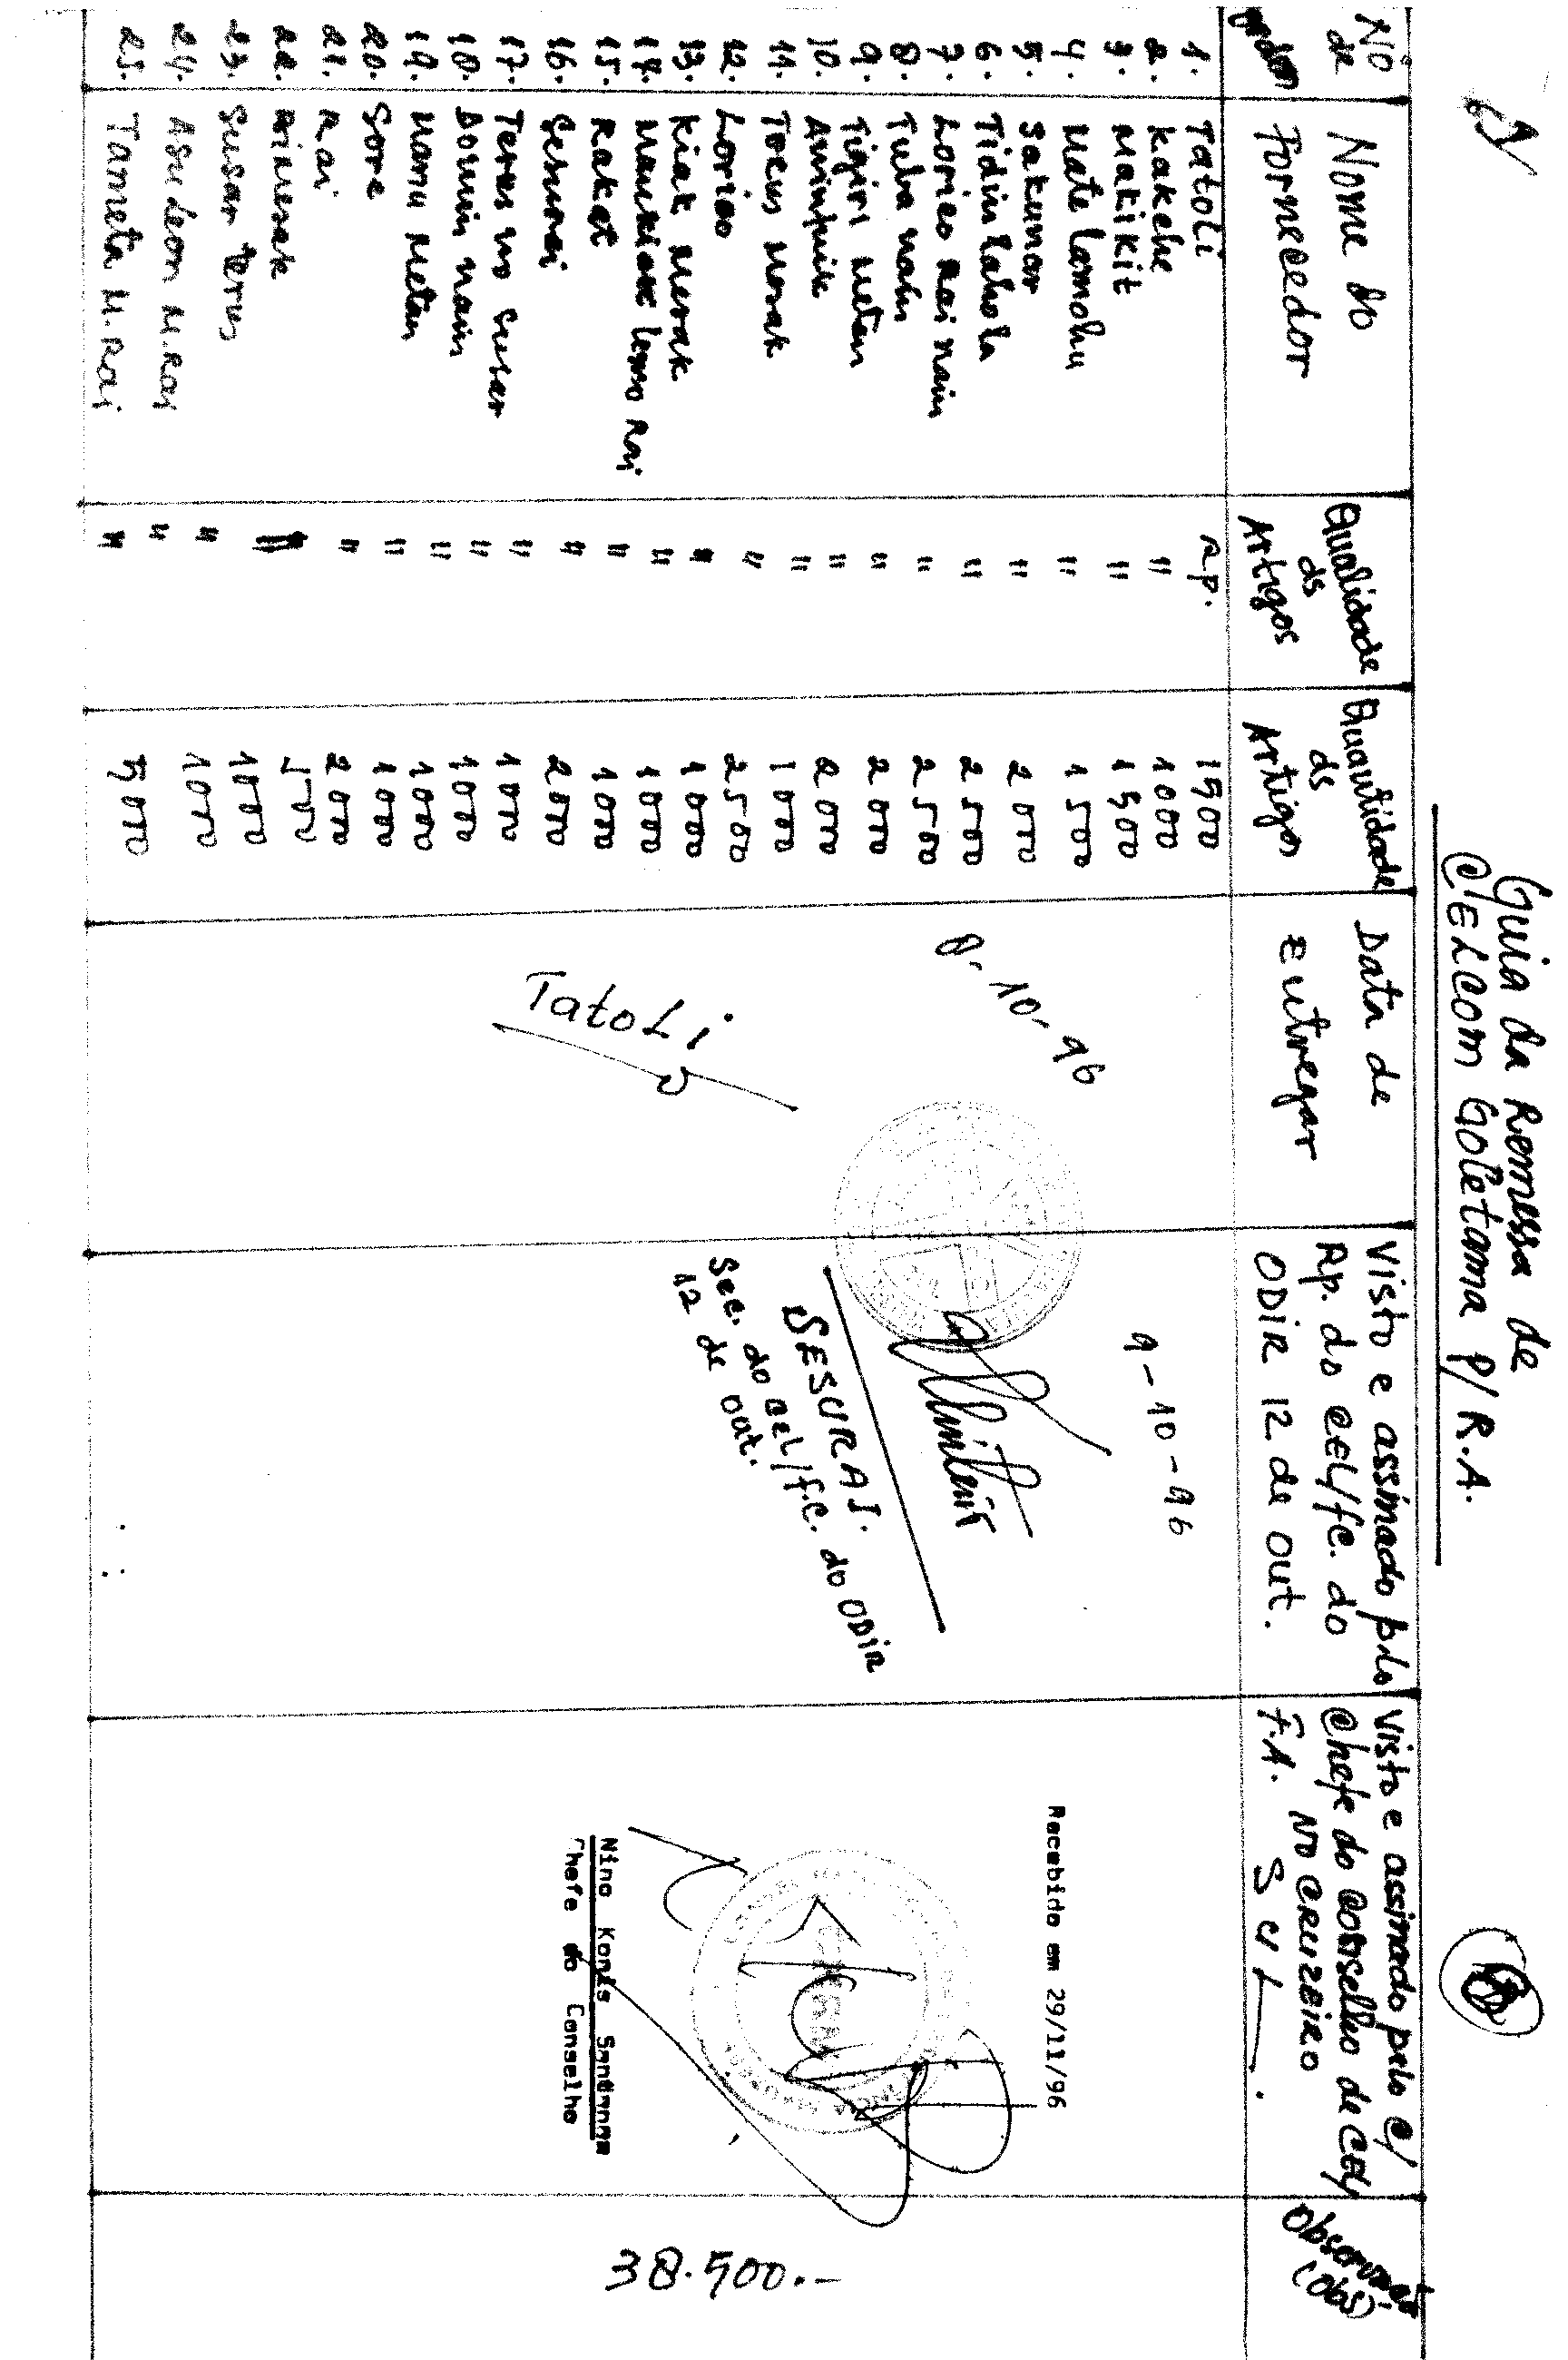 Guia da Remessa de
CELCOM Goletama P/ R.A.
Nº de ordem | Nome do Fornecedor | Qualidade ds Artigos | Quantidade ds Artigos | Data de Entregar | Visto e assinado pelo Rp. do CEL/FC. do ODIR 12 de OUT. | Visto e assinado pelo C/ Chefe do Conselho de CEL/ F.A. NO CRUZEIRO SUL. | Observação (Obs)
1. Tatoli rp. 1500
2. Kakehe " 1000
3. Makikit " 1500
4. Mate Lamohu " 1500
5. Sakunar " 2000
6. Tidin Lahola " 2500
7. Lorico Rai nain " 2500
8. Tuba nahu " 2000
9. Tigiri Metan " 2000
10. Aminuik " 1000
11. Tocus Morak " 2500
12. Lorico " 1000
13. Kiak Merak " 1000
14. Maukiak Lemo Rai " 1000
15. Rakat " 2000
16. Sesurai " 1000
17. Terus no Susar " 1000
18. Domin nain " 1000
19. Manu Metan " 1000
20. Sore " 2000
21. Rai " 500
22. " 1000
23. Susar terus " 1000
24. Asudeon M. Rai " 5000
25. Tameta M. Rai "
8-10-96
Tatoli
9-10-96
SESURAI.
Sec. do CEL/F.C. do ODIR
12 de out.
Recebido em 29/11/96
Nino Konis Santanam
Chefe do Conselho
38.500.-